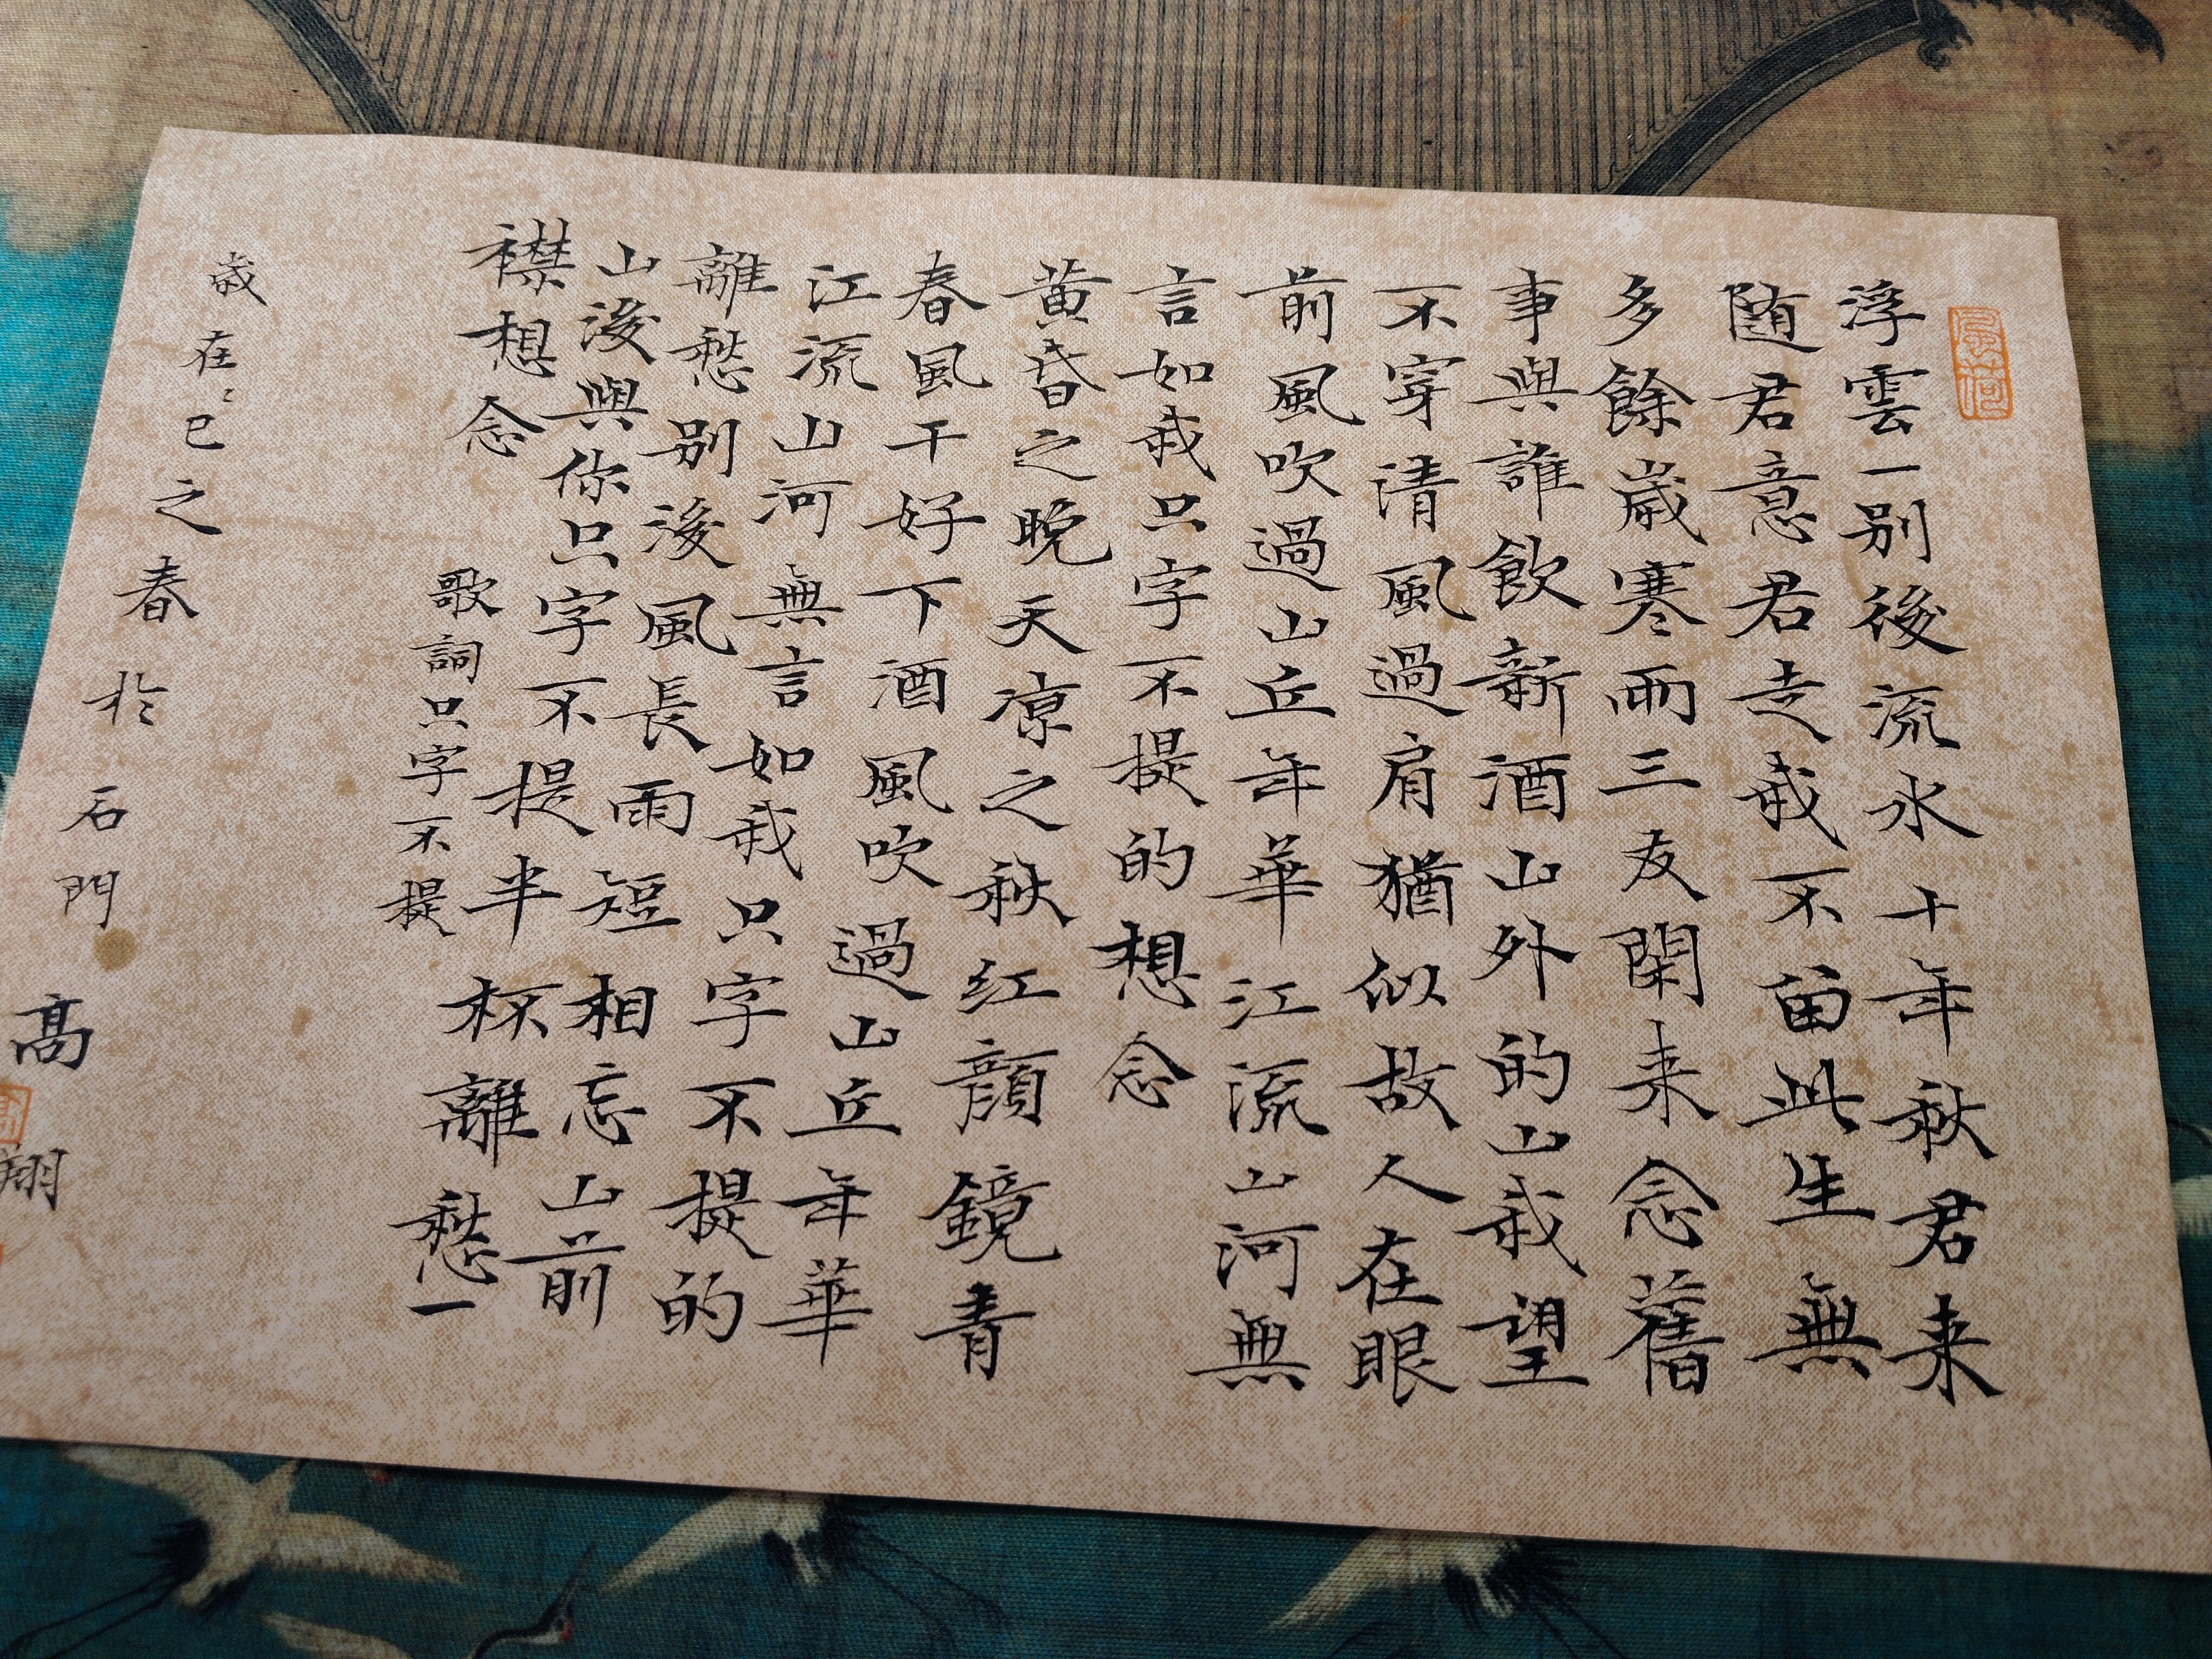 浮雲一别後流水十年秋君来
随君意君走我不留此生無
多餘歲寒雨三友閑来念舊
事與誰飲新酒山外的山我望
不穿清風過肩猶似故人在眼
前風吹過山丘年華江流山河無
言如我只字不提的想念
黄昏之晚天凉之秋红顏鏡青
春風干好下酒風吹過山丘年華
江流山河無言如我只字不提的
離愁别後風長雨短相忘山前
山後與你只字不提半杯離愁一
襟想念
歌詞只字不提
歲在乙巳之春於石門
高翔